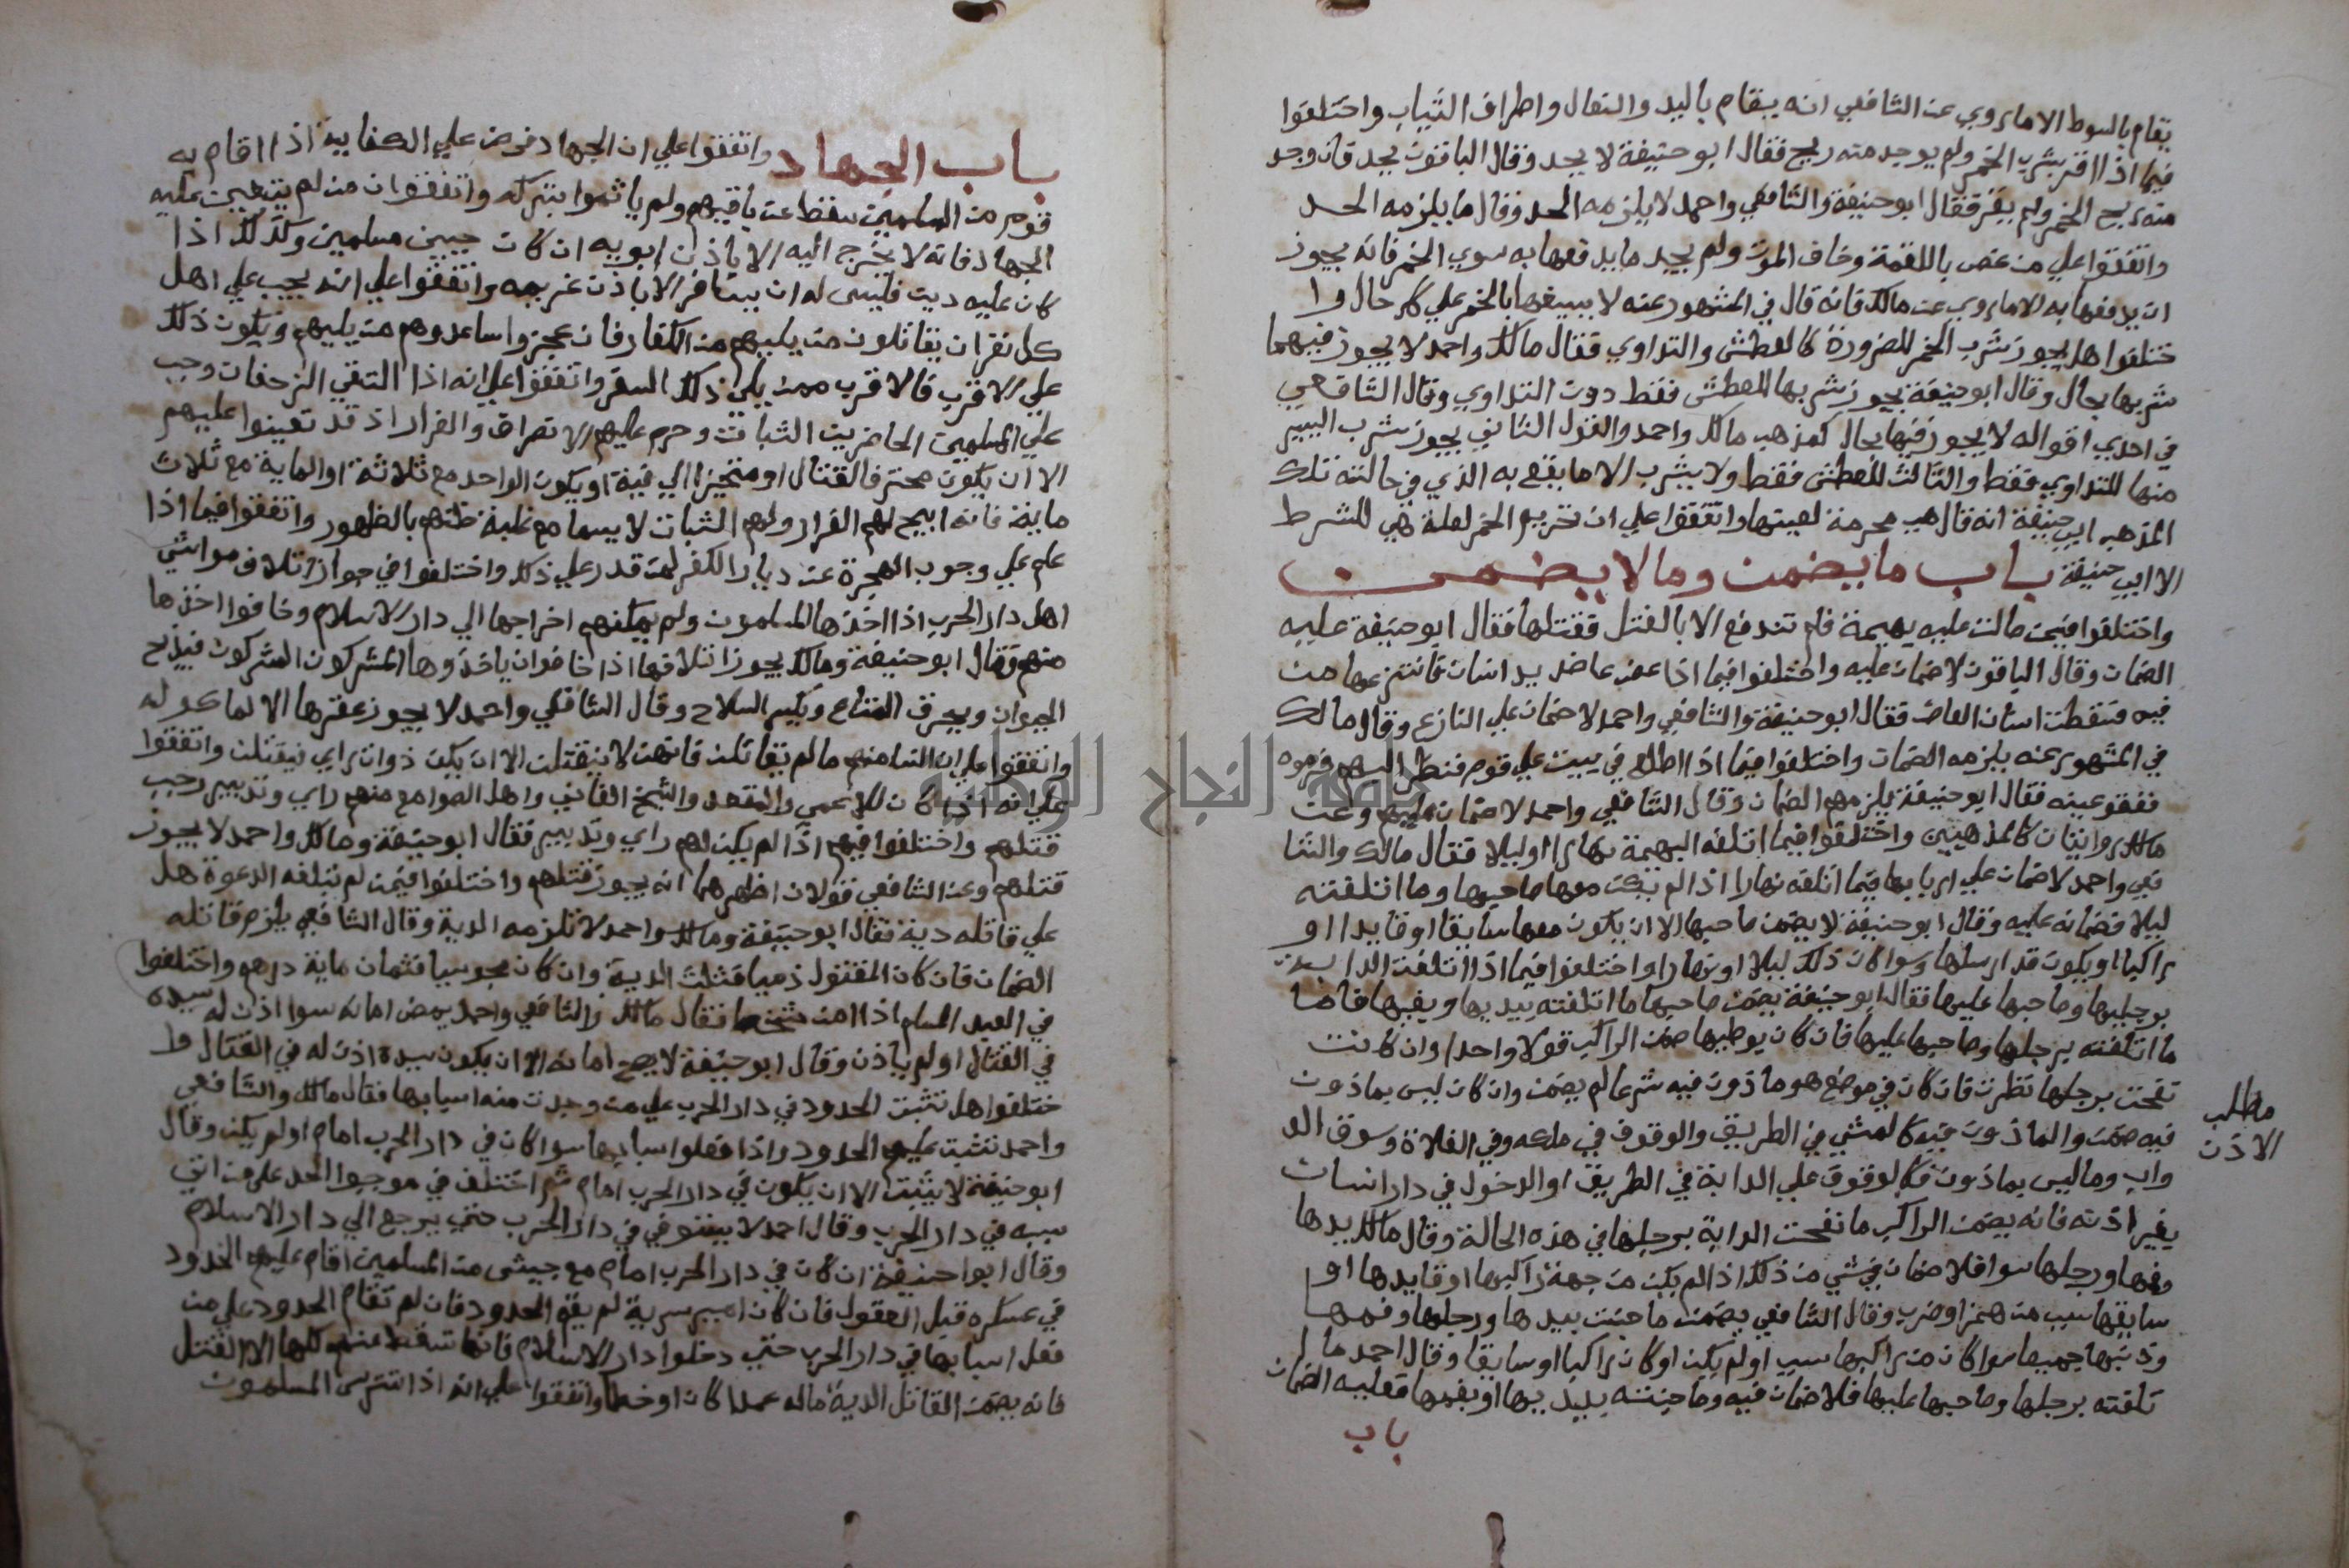 يقام بالسوط الا ما روي عن الشافعي انه يقام باليد والنعال واطراف الثياب واختلفوا
فيما اذا اقر بشرب الخمر ولم يوجد منه ريح فقال ابو حنيفة لا يحد وقال الباقون يحد فان وجد
منه ريح الخمر ولم يقر فقال ابو حنيفة والشافعي واحمد لا يلزمه الحد وقال ما يلزمه الحد
واتفقوا علي من غص باللقمة وخاف الموت ولم يجد ما يدفعها به سوي الخمر فانه يجوز
ان يدفعها به الا ما روي عن مالك فانه قال في المشهور عنه لا يسيغها بالخمر علي كل حال وا
ختلفوا هل يجوز شرب الخمر للضرورة كالعطش والتداوي فقال مالك واحمد لا يجوز فيهما
شربها بحال وقال ابو حنيفة يجوز شربها للعطش فقط دون التداوي وقال الشافعي
في احدي اقواله لا يجوز فيها بحال كمذهب مالك واحمد والقول الثاني يجوز شرب اليسير
منها للتداوي فقط والثالث للعطش فقط ولا يشرب الا ما يقع به الذي في حالته تلك
المذهب ابي حنيفة انه قال هي محرمة لعينها واتفقوا علي ان تحريم الخمر لعلة هي للشرط
الا ابي حنيفة باب ما يضمن وما لا يضمن
واختلفوا فيمن صالت عليه بهيمة فلم تندفع الا بالقتل فقتلها فقال ابو حنيفة عليه
الضمان وقال الباقون لا ضمان عليه واختلفوا فيما اذا عض عاض يد انسان فانتزعها من
فيه فسقطت اسنان العاض فقال ابو حنيفة والشافعي واحمد لا ضمان علي النازع وقال مالك
في المشهور عنه يلزمه الضمان واختلفوا فيما اذا اطلع في بيت علي قوم فنظر اليهم فرموه
ففقو عينه فقال ابو حنيفة يلزمهم الضمان وقال الشافعي واحمد لا ضمان عليهم وعن
مالك روايتان كالمذهبين واختلفوا فيما اتلفه البهيمة نهارا او ليلا فقال مالك والشا
فعي واحمد لا ضمان علي اربابها فيما اتلفه نهارا اذا لم يكن معها صاحبها وما اتلفته
ليلا فضمانه عليه وقال ابو حنيفة لا يضمن صاحبها الا ان يكون معها سايقا او قايدا او
راكبا او يكون قد ارسلها وسوا كان ذلك ليلا او نهارا واختلفوا فيما اذا اتلفت الدابة
برجليها وصاحبها عليها فقال ابو حنيفة يضمن صاحبها ما اتلفته بيديها وبفيها فاما
ما اتلفته برجلها وصاحبها عليها فان كان يوطيها ضمن الراكب قولا واحدا وان كانت
نفحت برجلها نظرت فان كان في موضع هو ماذون فيه شرعا لم يضمن وان كان ليس بماذون
فيه ضمن والماذون فيه كالمشي في الطريق والوقوف في ملكه وفي الفلاة وسوق الد
واب وما ليس بماذون فكالوقوف علي الدابة في الطريق او الدخول في دار انسان
بغير اذنه فانه يضمن الراكب ما نفحت الدابة برجلها في هذه الحالة وقال مالك يدها
وفمها ورجلها سوا فلا ضمان في شي من ذلك اذا لم يكن من جهة راكبها او قايدها او
سايقها سبب من همز او ضرب وقال الشافعي يضمن ما جنت بيدها ورجلها وفمها
وذنبها جميعا سوا كان من راكبها سبب او لم يكن او كان راكبا او سايقا وقال احمد ما ا
تلفته برجلها وصاحبها عليها فلا ضمان فيه وما جنته بيديها او بفمها فعليه الضمان
باب
مطلب
الاذن
باب الجهاد واتفقوا علي ان الجهاد فرض علي الكفاية اذا اقام به
قوم من المسلمين سقط عن باقيهم ولم ياثموا بتركه واتفقوا ان من لم يتعين عليه
الجهاد فانه لا يخرج اليه الا باذن ابويه ان كان حيين مسلمين وكذلك اذا
كان عليه دين فليس له ان يسافر الا باذن غريمه واتفقوا علي انه يجب علي اهل
كل ثغر ان يقاتلون من يليهم من الكفار فان عجزوا ساعدوهم من يليهم ويكون ذلك
علي الاقرب فالاقرب ممن يلي ذلك الثغر واتفقوا علي انه اذا التقي الزحفان وجب
علي المسلمين الحاضرين الثبات وحرم عليهم الانصراف والفرار اذ قد تعينوا عليهم
الا ان يكون متحرفا لقتال او متحيزا الي فية او يكون الواحد مع ثلاثة او الماية مع ثلاث
ماية فانه ابيح لهم الفرار ولهم الثبات لا سيما مع غلبة ظنهم بالظهور واتفقوا فيما اذا
علم علي وجوب الهجرة عن ديار الكفر لمن قدر علي ذلك واختلفوا في جواز اتلاف مواشي
اهل دار الحرب اذا اخذها المسلمون ولم يمكنهم اخراجها الي دار الاسلام وخافوا اخذها
منهم فقال ابو حنيفة ومالك يجوز اتلافها اذا خافوا ان ياخذوها المشركون المشركون فيذبح
الحيوان ويحرق المتاع ويكسر السلاح وقال الشافعي واحمد لا يجوز عقرها الا لماكوله
واتفقوا علي ان النسا منهم ما لم يقاتلن فانهن لا يقتلن الا ان يكن ذوات راي فيقتلن واتفقوا
علي انه اذا كان للاعمي والمقعد والشيخ الفاني واهل الصوامع منهم راي وتدبير وجب
قتلهم واختلفوا فيهم اذا لم يكن لهم راي وتدبير فقال ابو حنيفة ومالك واحمد لا يجوز
قتلهم وعن الشافعي قولان اظهرهما انه يجوز قتلهم واختلفوا فيمن لم تبلغه الدعوة هل
علي قاتله دية فقال ابو حنيفة ومالك واحمد لا تلزمه الدية وقال الشافعي يلزم قاتله
الضمان فان كان المقتول ذميا فثلث الدية وان كان مجوسيا فثمان ماية درهم واختلفوا
في العبد المسلم اذا امن شخصا فقال مالك والشافعي واحمد يمض امانه سوا اذن له سيده
في القتال او لم ياذن وقال ابو حنيفة لا يصح امانه الا ان يكون سيده اذن له في القتال وا
ختلفوا هل تثبت الحدود في دار الحرب علي من وجدت منه اسبابها فقال مالك والشافعي
واحمد تثبت عليهم الحدود اذا فعلوا اسبابها سوا كان في دار الحرب امام او لم يكن وقال
ابو حنيفة لا يثبت الا ان يكون في دار الحرب امام ثم اختلف في موجبوا الحد علي من اتي
سببه في دار الحرب وقال احمد لا يستوفي في دار الحرب حتي يرجع الي دار الاسلام
وقال ابوا حنيفة ان كان في دار الحرب امام مع جيش من المسلمين اقام عليهم الحدود
في عسكره قبل القفول فان كان امير سرية لم يقم الحدود فان لم تقام الحدود علي من
فعل اسبابها في دار الحرب حتي دخلوا دار الاسلام فانها تسقط عنهم كلها الا القتل
فانه يضمن القاتل الدية ماله عمدا كان او خطا واتفقوا علي انه اذا تترس المسلمون
جامعة النجاح الوطنية